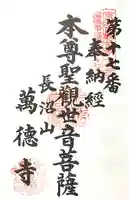 第十七番
奉納経
本尊聖観世音菩薩
長沼山
萬徳寺